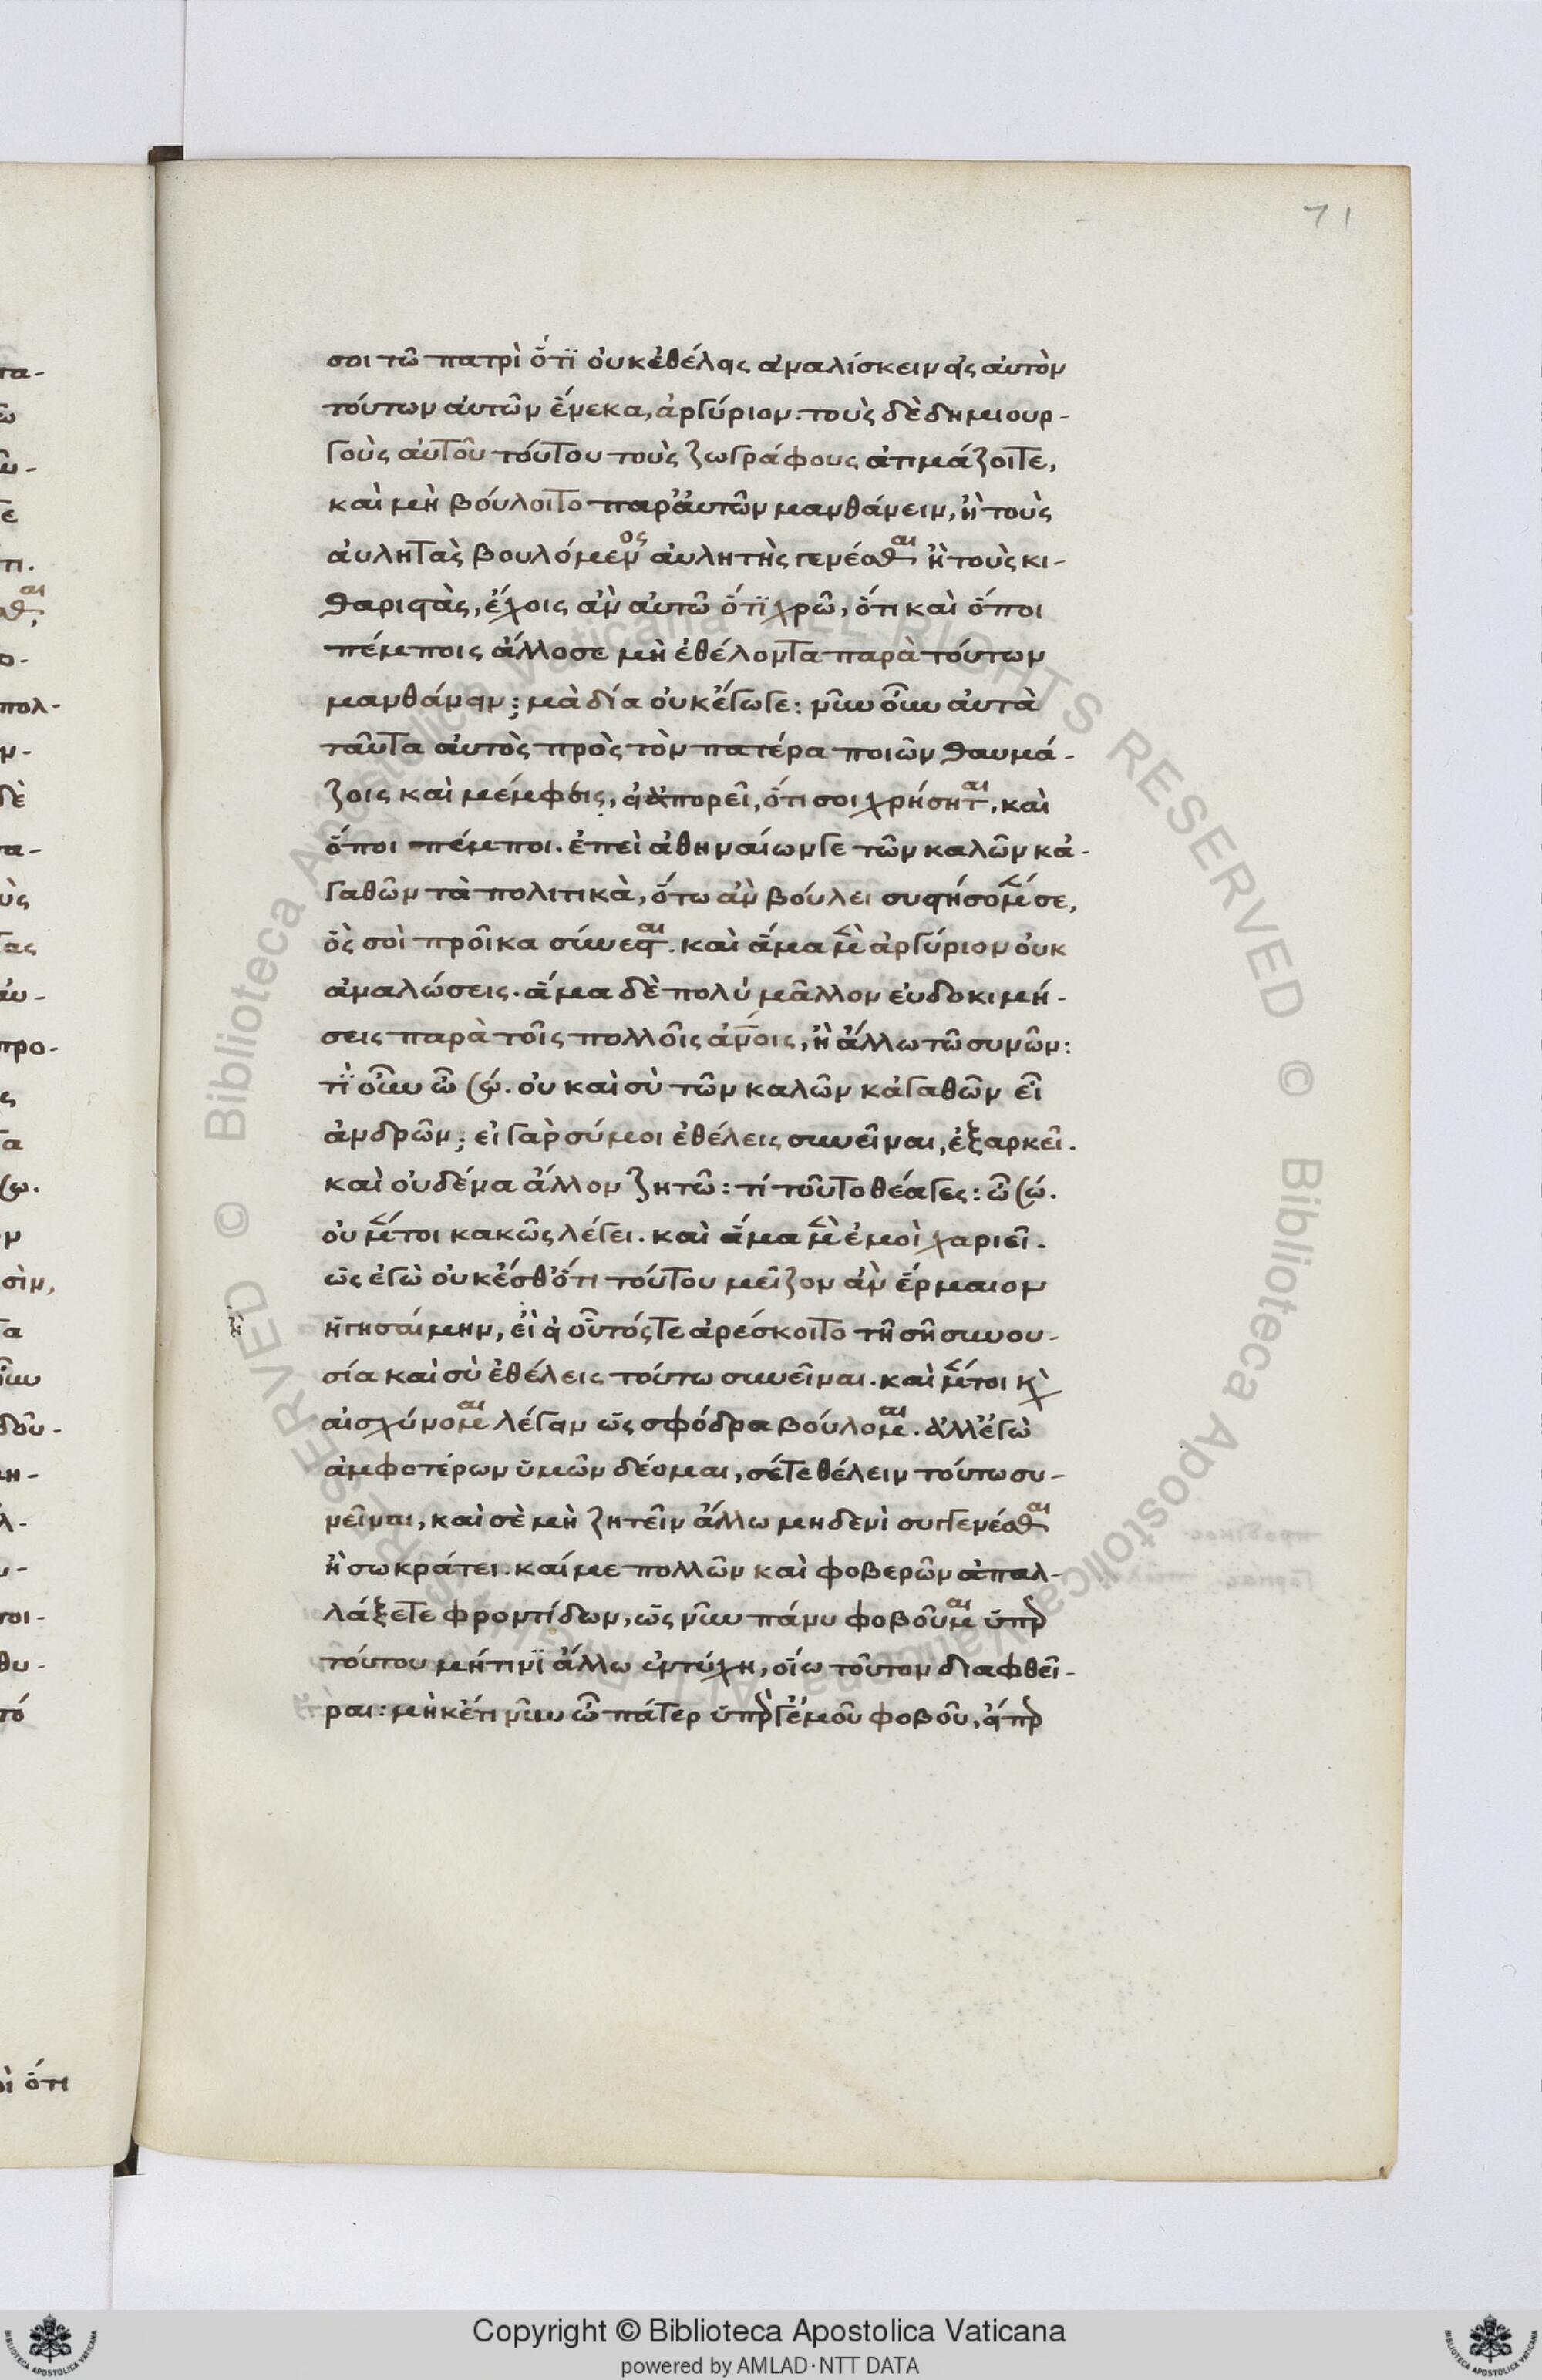 71
σοι τῶ πατρὶ ὅτι οὐκ ἐθέλεις ἀναλίσκειν εἰς αὐτὸν
τούτων αὐτῶν ἕνεκα, ἀργύριον: τοὺς δὲ δημιουρ-
γοὺς αὐτοῦ τούτου τοὺς ζωγράφους ἀτιμάζοι τε,
καὶ μὴ βούλοιτο παρ' αὐτῶν μανθάνειν, ἢ τοὺς
αὐλητὰς βουλόμενος αὐλητὴς γενέσθαι ἢ τοὺς κι-
θαριστὰς, ἔχοις ἂν αὐτῶ ὅτι χρῶ, ὅτι καὶ ὅποι
πέμποις ἄλλοσε μὴ ἐθέλοντα παρὰ τούτων
μανθάνειν; μὰ δία οὐκ ἔγωγε: νῦν οὖν αὐτὰ
ταῦτα αὐτὸς πρὸς τὸν πατέρα ποιῶν θαυμά-
ζοις καὶ μέμφεις, εἰ ἀπορεῖ, ὅτι σοι χρήσηται, καὶ
ὅποι πέμποι. ἐπεὶ ἀθηναίων γε τῶν καλῶν κἀ-
γαθῶν τὰ πολιτικὰ, ὅτω ἂν βούλει συστήσομέν σε,
ὅς σοὶ προῖκα σύνεσται. καὶ ἅμα μὲν ἀργύριον οὐκ
ἀναλώσεις. ἅμα δὲ πολὺ μᾶλλον εὐδοκιμή-
σεις παρὰ τοῖς πολλοῖς ἀνοις, ἢ ἄλλω τῶ συνῶν:
τί οὖν ὦ σώ. οὐ καὶ σὺ τῶν καλῶν κἀγαθῶν εἶ
ἀνδρῶν; εἰ γὰρ σύ μοι ἐθέλεις συνεῖναι, ἐξαρκεῖ.
καὶ οὐδένα ἄλλον ζητῶ: τί τοῦτο θέαγες: ὦ σώ.
οὐ μέντοι κακῶς λέγει. καὶ ἅμα μὲν ἐμοὶ χαριεῖ.
ὡς ἐγὼ οὐκ ἔσθ' ὅτι τούτου μεῖζον ἂν ἕρμαιον
ἡγησαίμην, εἲ εἰ οὗτός τε ἀρέσκοιτο τῆ σῆ συνου-
σία καὶ σὺ ἐθέλεις τούτω συνεῖναι. καὶ μέντοι καὶ
αἰσχύνομαι λέγειν ὡς σφόδρα βούλομαι. ἀλλ' ἐγὼ
ἀμφοτέρων ὑμῶν δέομαι, σέ τε θέλειν τούτω συ-
νεῖναι, καὶ σὲ μὴ ζητεῖν ἄλλω μηδενὶ συγγενέσθαι
ἢ σωκράτει. καί με πολλῶν καὶ φοβερῶν ἀπαλ-
λάξετε φροντίδων, ὡς νῦν πάνυ φοβοῦμαι ὑπὲρ
τούτου μή τινι ἄλλω ἐντύχη, οἵω τοῦτον διαφθεῖ-
ραι: μὴ κέτι νῦν ὦ πάτερ ὑπὲρ γ' ἐμοῦ φοβοῦ, εἴπερ
οὶ ὅτι
Copyright © Biblioteca Apostolica Vaticana
powered by AMLAD·NTT DATA